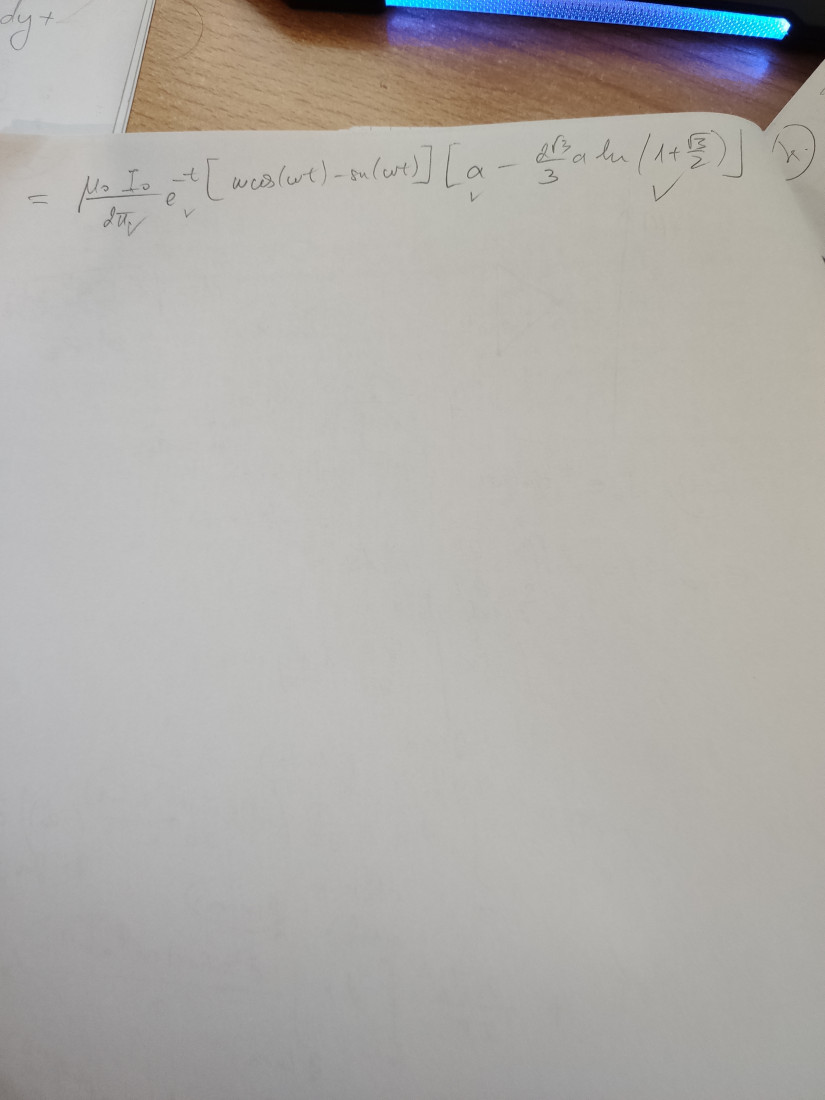 dy+
= μ₀ I₀ / 2π e^-t [ω cos(ωt) - sin(ωt)] [a - 2√3/3 a ln (1+ √3/2)]